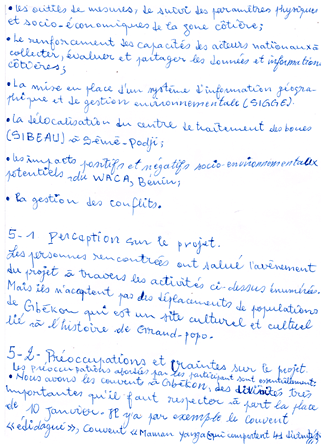 • les outils de mesures, de suivi des paramètres physiques
et socio-économiques de la zone côtière;
• Le renforcement des capacités des acteurs nationaux à
collecter, évaluer et partager les données et informations
côtières;
• La mise en place d'un système d'information géogra-
phique et de gestion environnementale (SIGGE).
• La délocalisation du centre de traitement des boues
(SIBEAU) à Sèmè-Podji;
• les impacts positifs et négatifs socio-environnementaux
potentiels du WACA, Bénin;
• La gestion des conflits.
5-1 Perception sur le projet.
Les personnes rencontrées ont salué l'avènement
du projet à travers les activités ci-dessus énumérées.
Mais ils n'acceptent pas des déplacements de populations
de Gbékon qui est un site culturel et cultuel
lié à l'histoire de Grand-popo.
5-2- Préoccupations et craintes sur le projet.
Les préoccupations abordés par les participant sont essentiellement:
• Nous avons les couvents à Gbékon, des divinités très
importantes qu'il faut respecter à part la place
de 10 janvier. Il y a par exemple le couvent
couvent «Maman